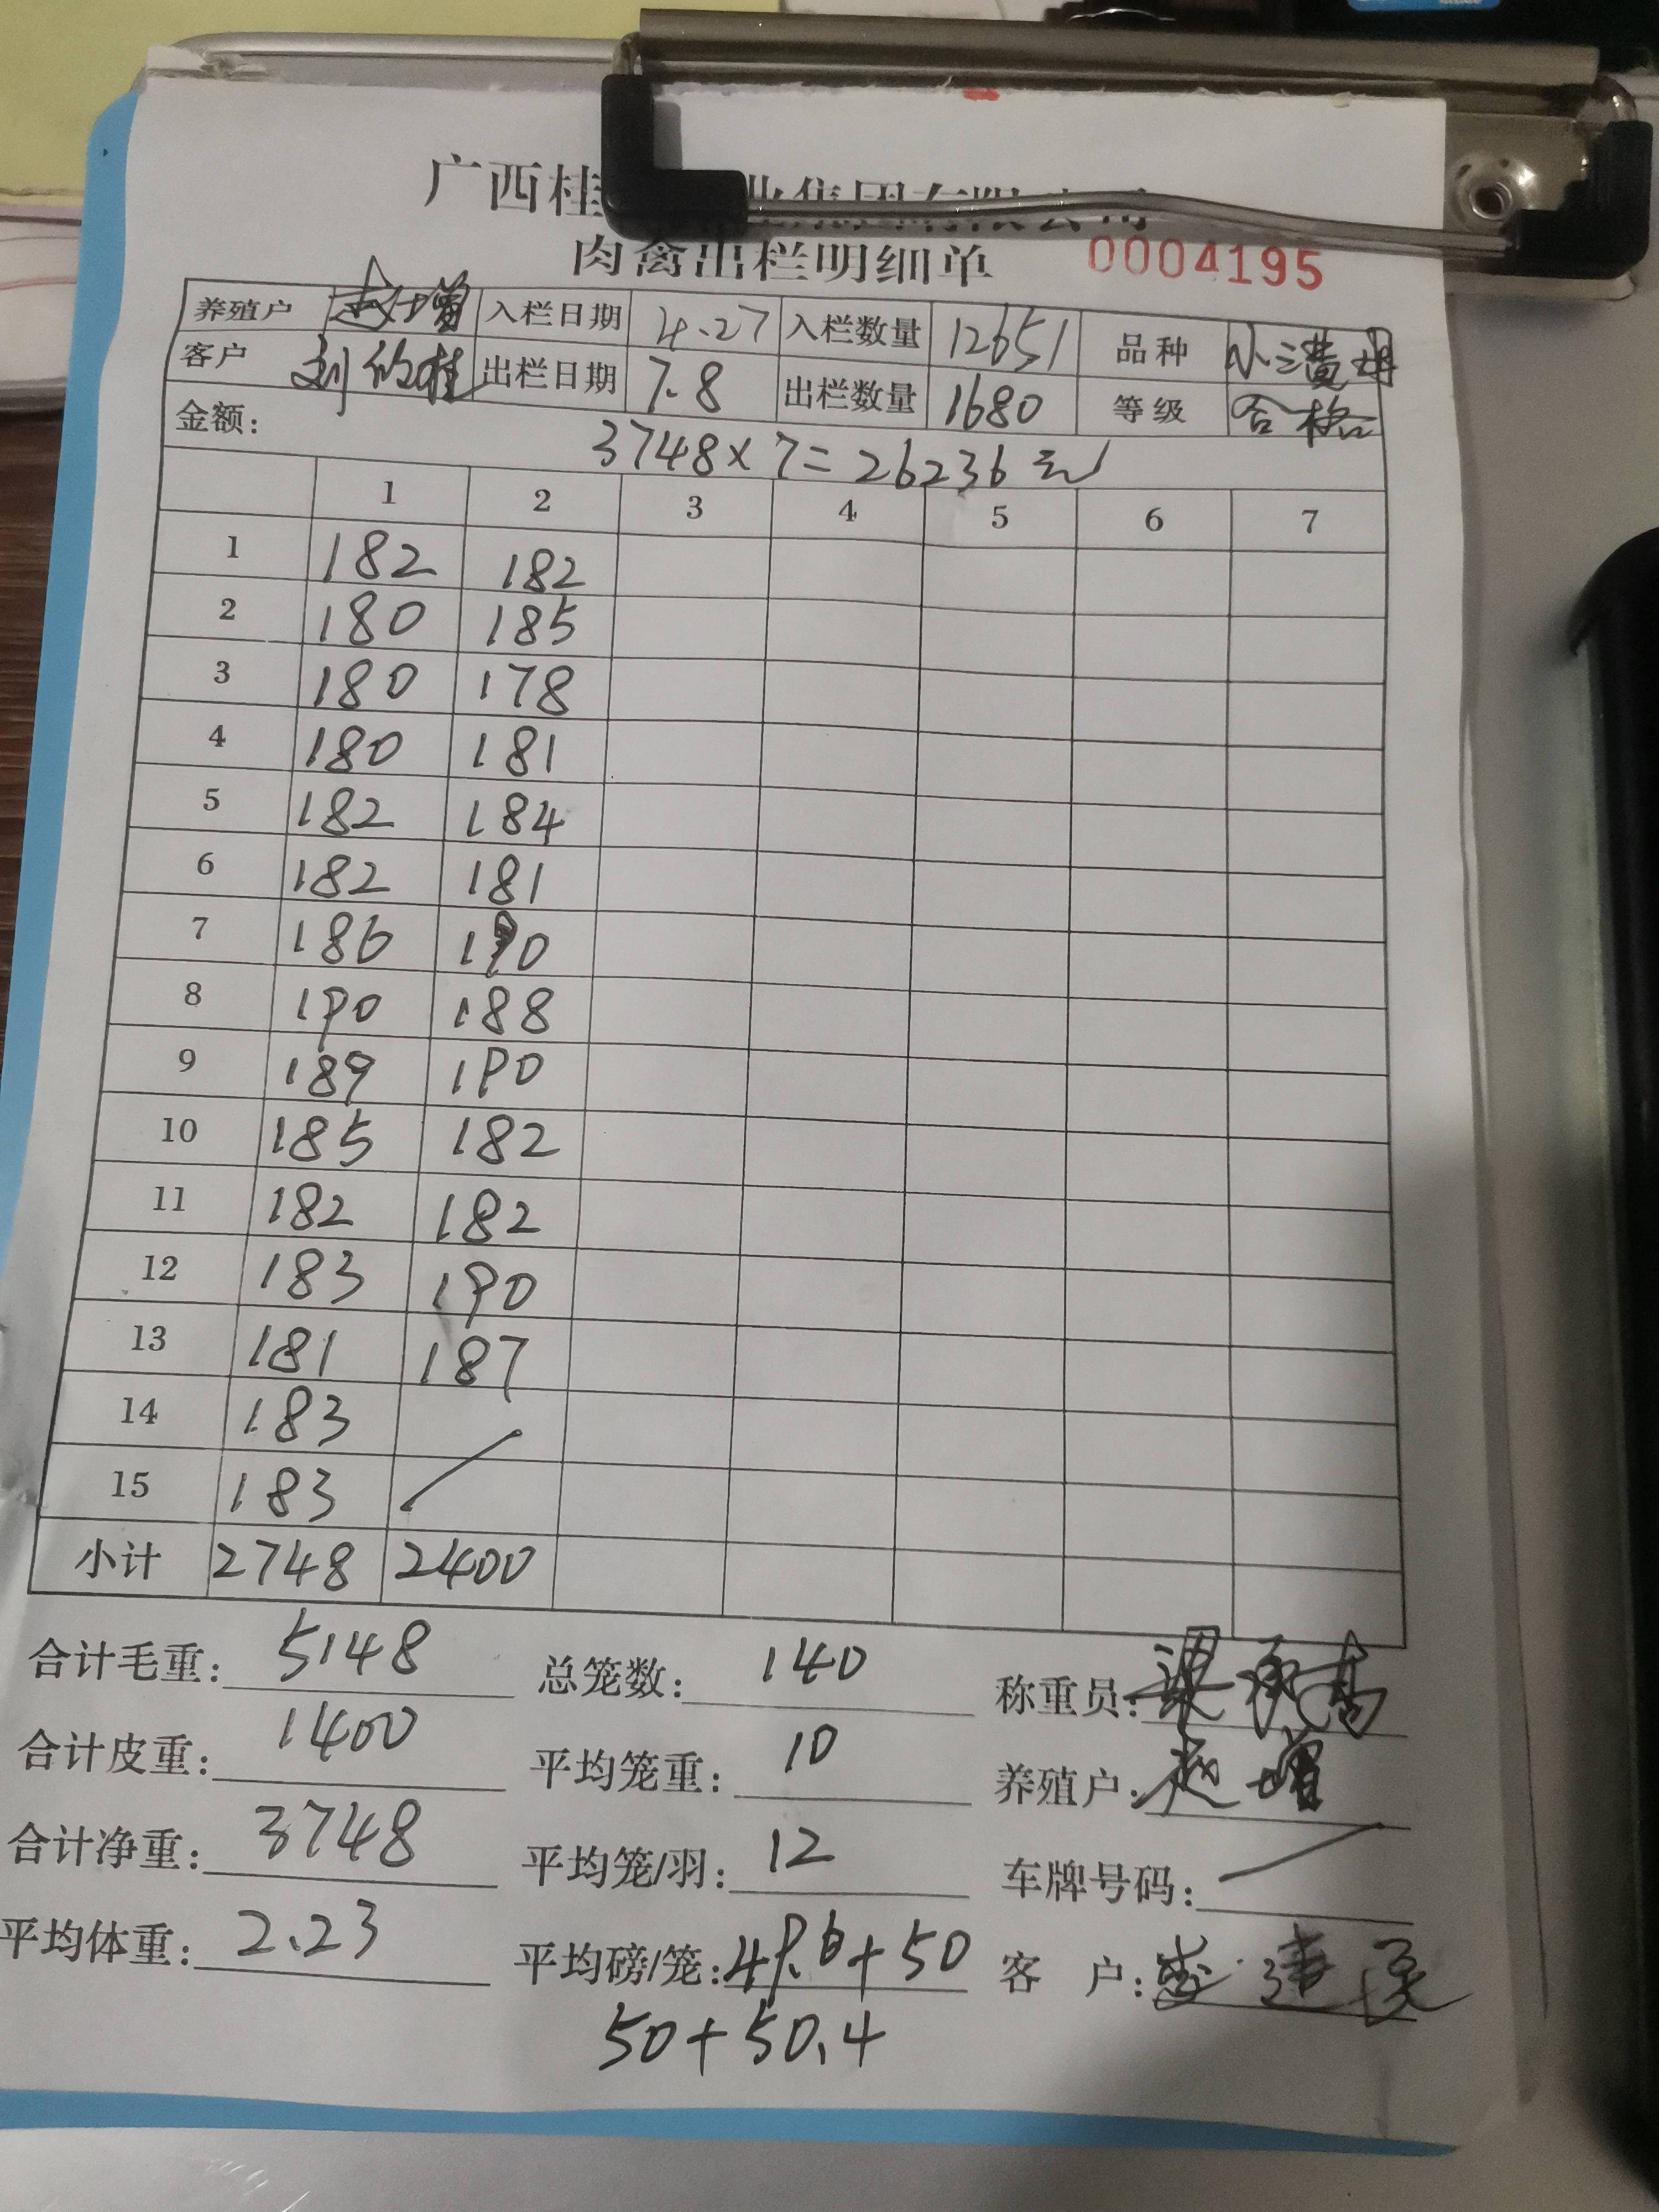 广西桂 业集团有限公司
肉禽出栏明细单 0004195
养殖户 赵增 入栏日期 4.27 入栏数量 12651 品种 小三黄母
客户 刘 桂 出栏日期 7.8 出栏数量 1680 等级 合格
金额: 3748×7=26236元
1 2 3 4 5 6 7
1 182 182
2 180 185
3 180 178
4 180 181
5 182 184
6 182 181
7 186 190
8 190 188
9 189 190
10 185 182
11 182 182
12 183 190
13 181 187
14 183
15 183
小计 2748 2400
合计毛重: 5148 总笼数: 140 称重员:
合计皮重: 1400 平均笼重: 10 养殖户: 赵增
合计净重: 3748 平均笼/羽: 12 车牌号码:
平均体重: 2.23 平均磅/笼: 49.6+50 客 户:
50+50.4